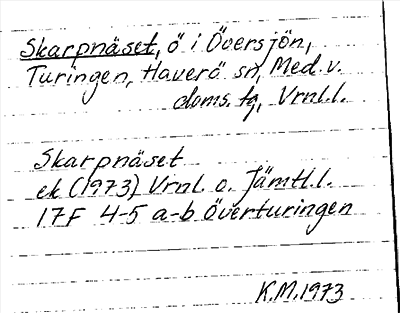 Skarpnäset, ö i Översjön,
Turingen, Haverö sn, Med. v.
doms. tg, Vrnl.l.
Skarpnäset
ek (1973) Vrnl. o. Jämtl.l.
17F 4-5 a-b Överturingen
K.M. 1973